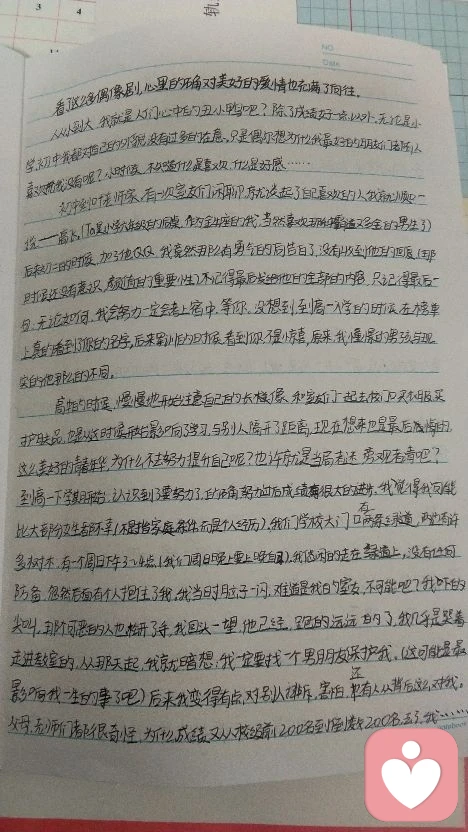 3 4
轨
NO.
DATE
看了这么多偶像剧,心里的确对美好的爱情也充满了向往。
从小到大,我就是人们心中的丑小鸭吧?除了成绩好一点以外,无论是小
学、初中我都对自己的外貌没有过多的在意,只是偶尔想为什么我最好的朋友们都有人
喜欢,就我没有呢?小时候,不懂什么是喜欢,什么是好感……
初中到叶老师家,有一次室友们闲聊,就谈起了自己喜欢的人,我就顺口一
说——高长,TA是小学六年级的同桌(作为金牛座的我,当然喜欢那种又多金的男生了)
后来初二的时候,加了他QQ,我竟然那么有勇气的向告白了,没有收到他的回应(那
时候还没有意识,颜值的重要性)不记得最后发给他的全部的内容,只记得最后一
句,无论如何,我会努力一定会考上宿中,等你。没想到到高一入学的时候,在榜单
上真的看到了你的名字,后来军训的时候,看到你不是惊喜,原来,我憧憬的男孩与现
实的他那么的不同。
高一的时候,慢慢也开始注意自己的长相,像和室友们一起去校门口买衣服,买
护肤品,也是这时候开始影响了学习,与别人隔开了距离,现在想来也是最后悔的,
这么美好的青春年华,为什么不去努力提升自己呢?也许就是当局者迷,旁观者清吧?
到高一下学期开始,认识到了要努力了,的确努力过后成绩有很大的进步,我觉得我可能
比大部分女生都不幸(不是指家庭条件,而是个人经历),我们学校大门口在两旁绿道,两边有许
多树木,有一个周日下午3~4点(我们周日晚上要上晚自习),我悠闲的走在绿道上,没有任何
防备,忽然后面有个人抱住了我,我当时肚子一闪,难道是我的室友,不可能吧?我吓的
尖叫,那个可恶的人也松开了手,我回头一望,他已经跑的远远的了,我几乎是哭着
走进教室的,从那天起,我就暗想:我一定要找一个男朋友保护我。(这可能是最
影响我一生的事了吧)后来我变得有点,对别人排斥,害怕,还有人从背后这么对我。
父母、老师们都很奇怪,为什么成绩又从校级前1200名到倒数200名去了,我……
notebook